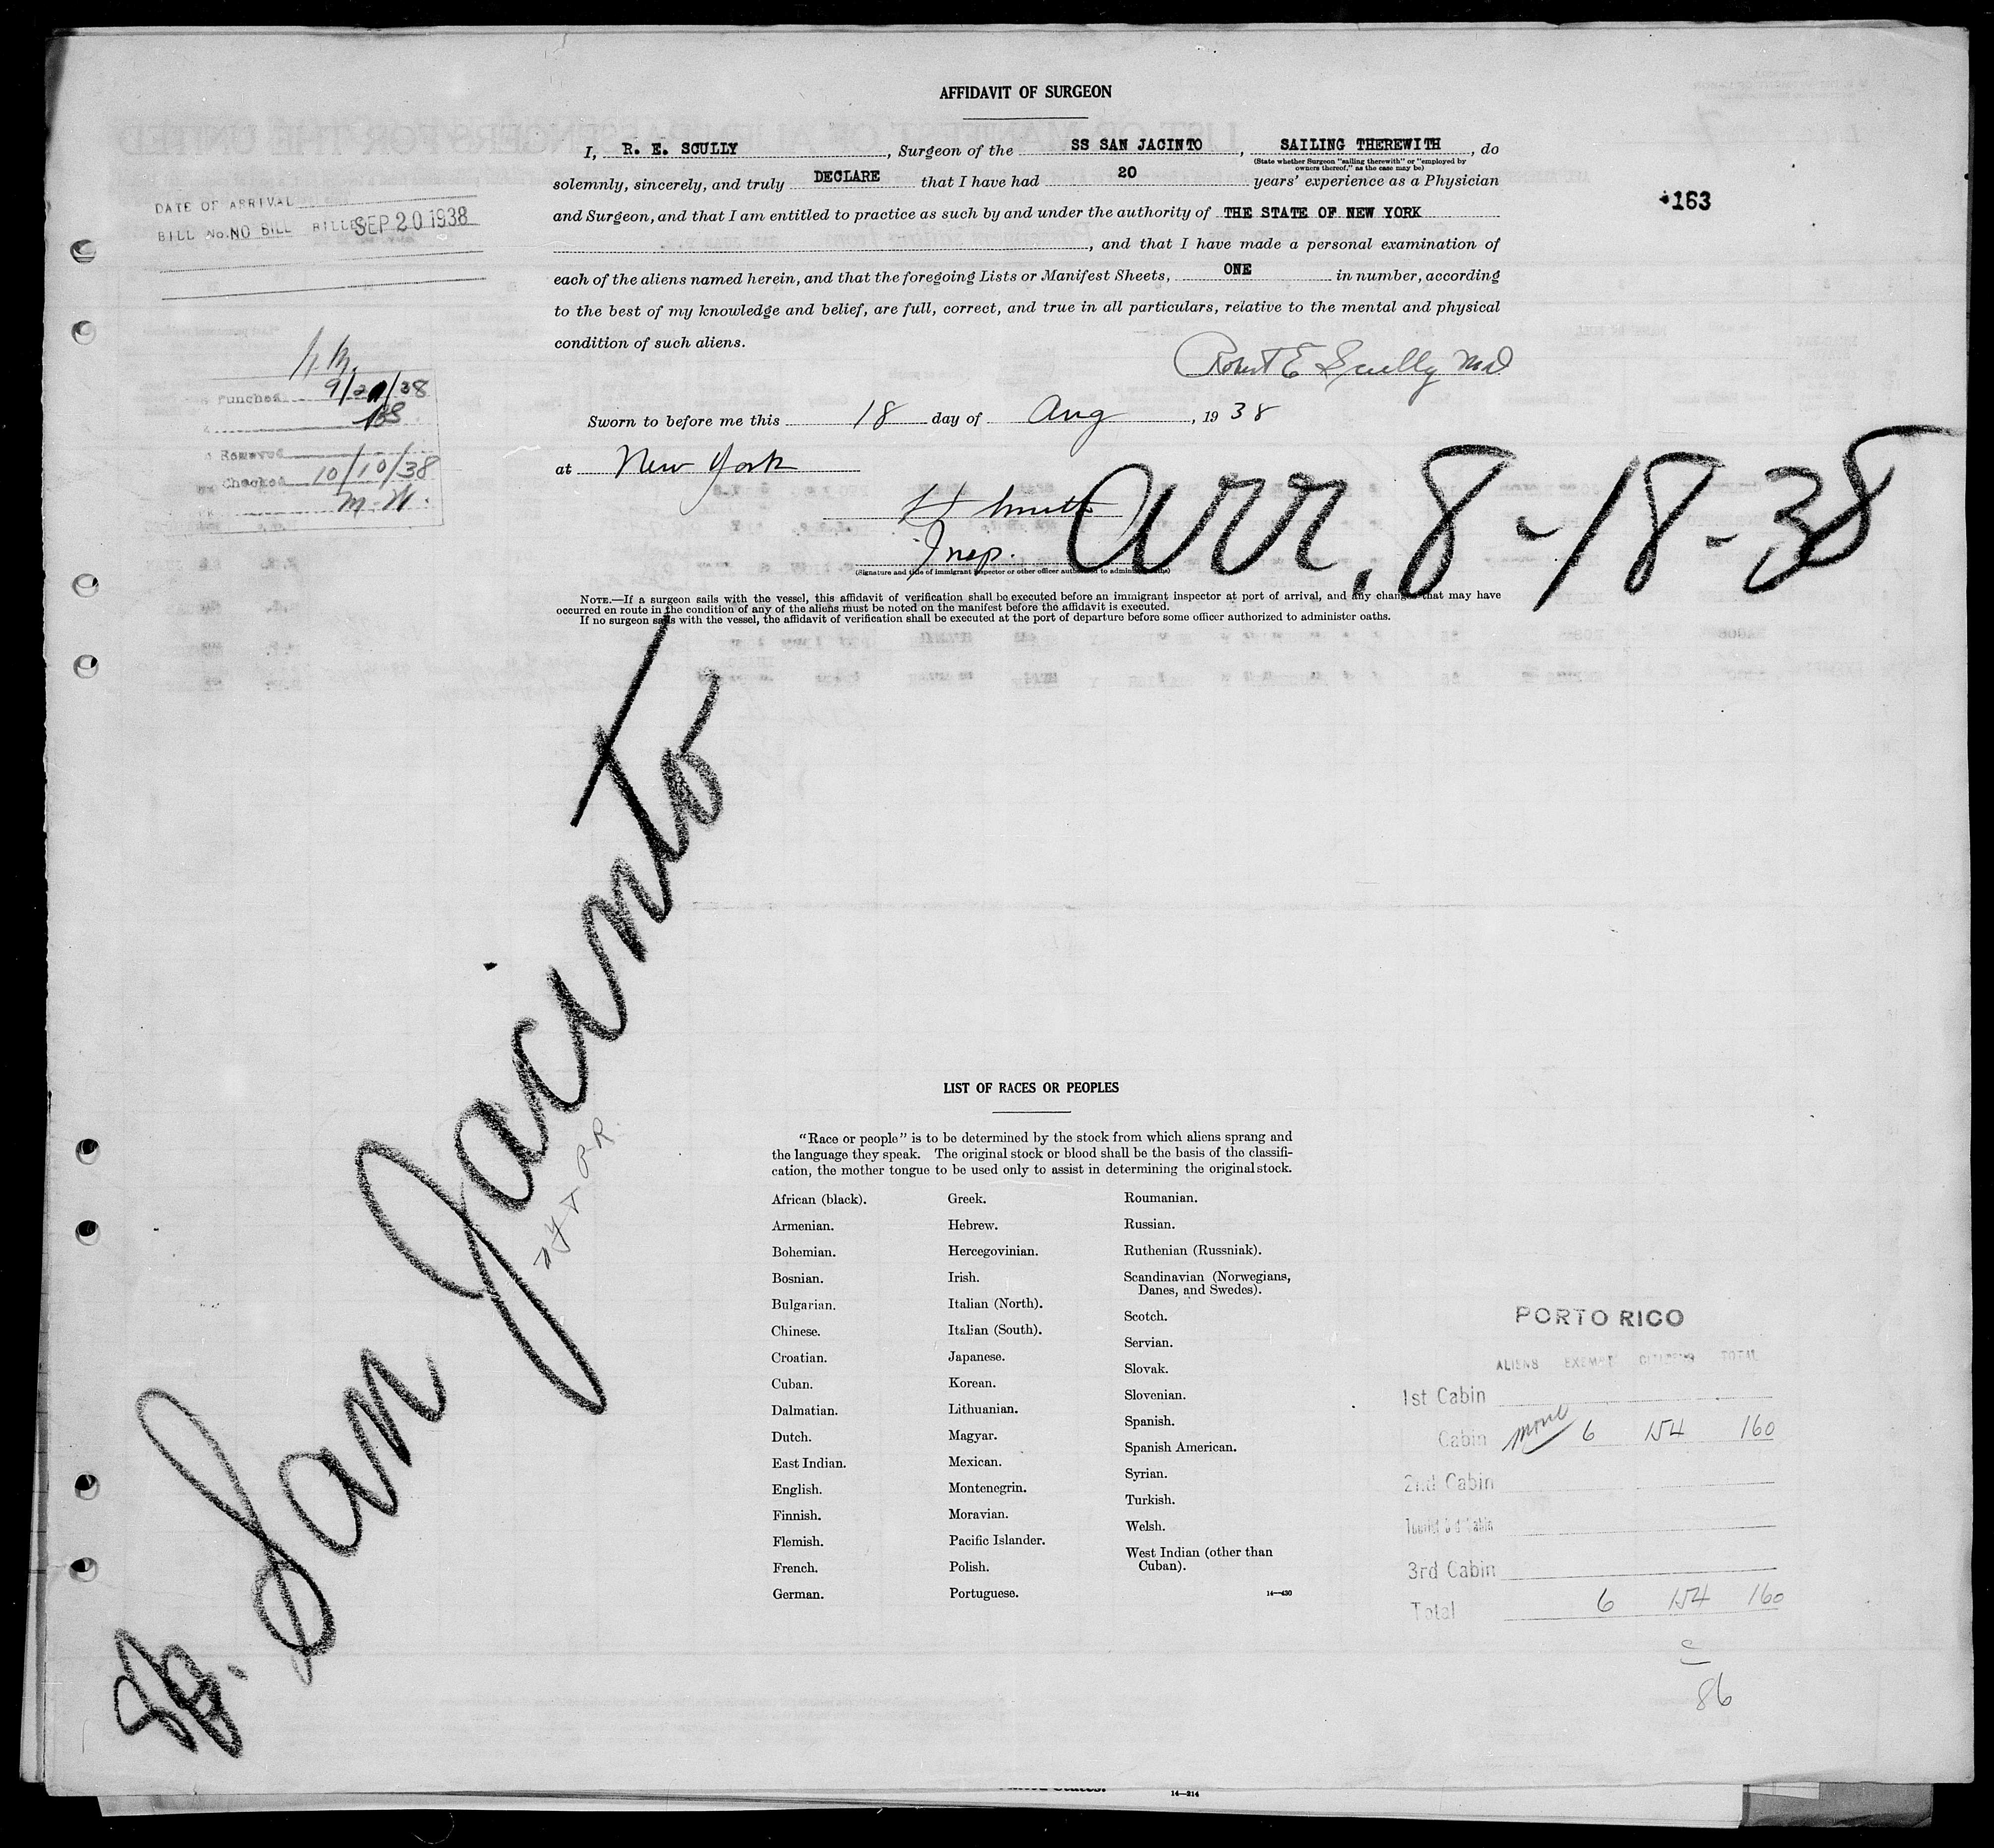 AFFIDAVIT OF SURGEON
I, R. E. SCULLY, Surgeon of the SS SAN JACINTO, SAILING THEREWITH, do
(State whether Surgeon "sailing therewith" or "employed by
owners thereof," as the case may be)
solemnly, sincerely, and truly DECLARE that I have had 20 years' experience as a Physician
and Surgeon, and that I am entitled to practice as such by and under the authority of THE STATE OF NEW YORK
, and that I have made a personal examination of
each of the aliens named herein, and that the foregoing Lists or Manifest Sheets, ONE in number, according
to the best of my knowledge and belief, are full, correct, and true in all particulars, relative to the mental and physical
condition of such aliens.
Robert E Scully MD
Sworn to before me this 18 day of Aug, 1938
at New York
Insp.
(Signature and title of immigrant inspector or other officer authorized to administer oaths)
NOTE.—If a surgeon sails with the vessel, this affidavit of verification shall be executed before an immigrant inspector at port of arrival, and any change that may have
occurred en route in the condition of any of the aliens must be noted on the manifest before the affidavit is executed.
If no surgeon sails with the vessel, the affidavit of verification shall be executed at the port of departure before some officer authorized to administer oaths.
163
DATE OF ARRIVAL
BILL No. NO BILL BILLED SEP 20 1938
Punched 9/21/38
Removed
Checked 10/10/38
M.W.
Arr. 8-18-38
SS. San Jacinto
NY & PR.
LIST OF RACES OR PEOPLES
"Race or people" is to be determined by the stock from which aliens sprang and
the language they speak. The original stock or blood shall be the basis of the classifi-
cation, the mother tongue to be used only to assist in determining the original stock.
African (black).
Armenian.
Bohemian.
Bosnian.
Bulgarian.
Chinese.
Croatian.
Cuban.
Dalmatian.
Dutch.
East Indian.
English.
Finnish.
Flemish.
French.
German.
Greek.
Hebrew.
Hercegovinian.
Irish.
Italian (North).
Italian (South).
Japanese.
Korean.
Lithuanian.
Magyar.
Mexican.
Montenegrin.
Moravian.
Pacific Islander.
Polish.
Portuguese.
Roumanian.
Russian.
Ruthenian (Russniak).
Scandinavian (Norwegians,
Danes, and Swedes).
Scotch.
Servian.
Slovak.
Slovenian.
Spanish.
Spanish American.
Syrian.
Turkish.
Welsh.
West Indian (other than
Cuban).
14—430
PORTO RICO
ALIENS EXEMPT CITIZENS TOTAL
1st Cabin
Cabin none 6 154 160
2nd Cabin
Tourist 3rd Cabin
3rd Cabin
Total 6 154 160
c
86
United States.
14—214